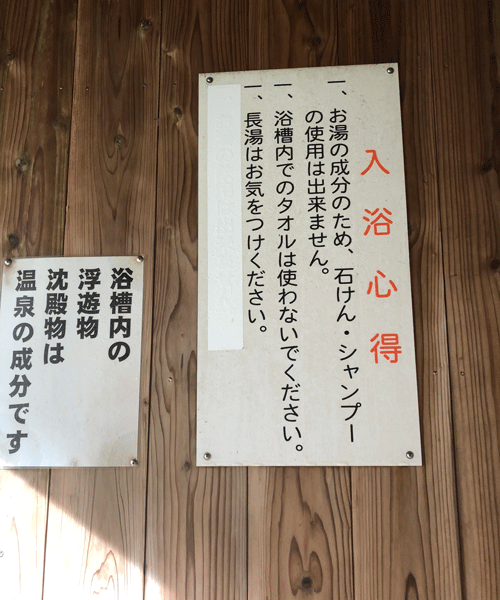 入浴心得
一、お湯の成分のため、石けん・シャンプー
の使用は出来ません。
一、浴槽内でのタオルは使わないでください。
一、長湯はお気をつけください。
浴槽内の
浮遊物
沈殿物は
温泉の成分です